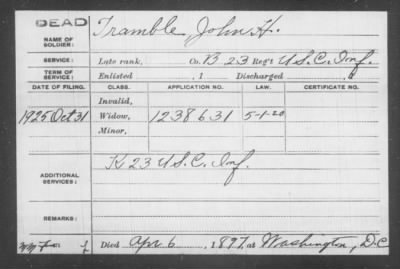 DEAD
NAME OF SOLDIER: Tramble, John H.
SERVICE: Late rank, Co. B 23 Reg't U.S.C. Inf.
TERM OF SERVICE: Enlisted , 1 Discharged , 1
DATE OF FILING. CLASS. APPLICATION NO. LAW. CERTIFICATE NO.
Invalid,
1925 Oct 31 Widow, 1238631 5-1-20
Minor,
ADDITIONAL SERVICES: K 23 U.S.C. Inf.
REMARKS:
Died Apr. 6, 1897, at Washington, D.C.